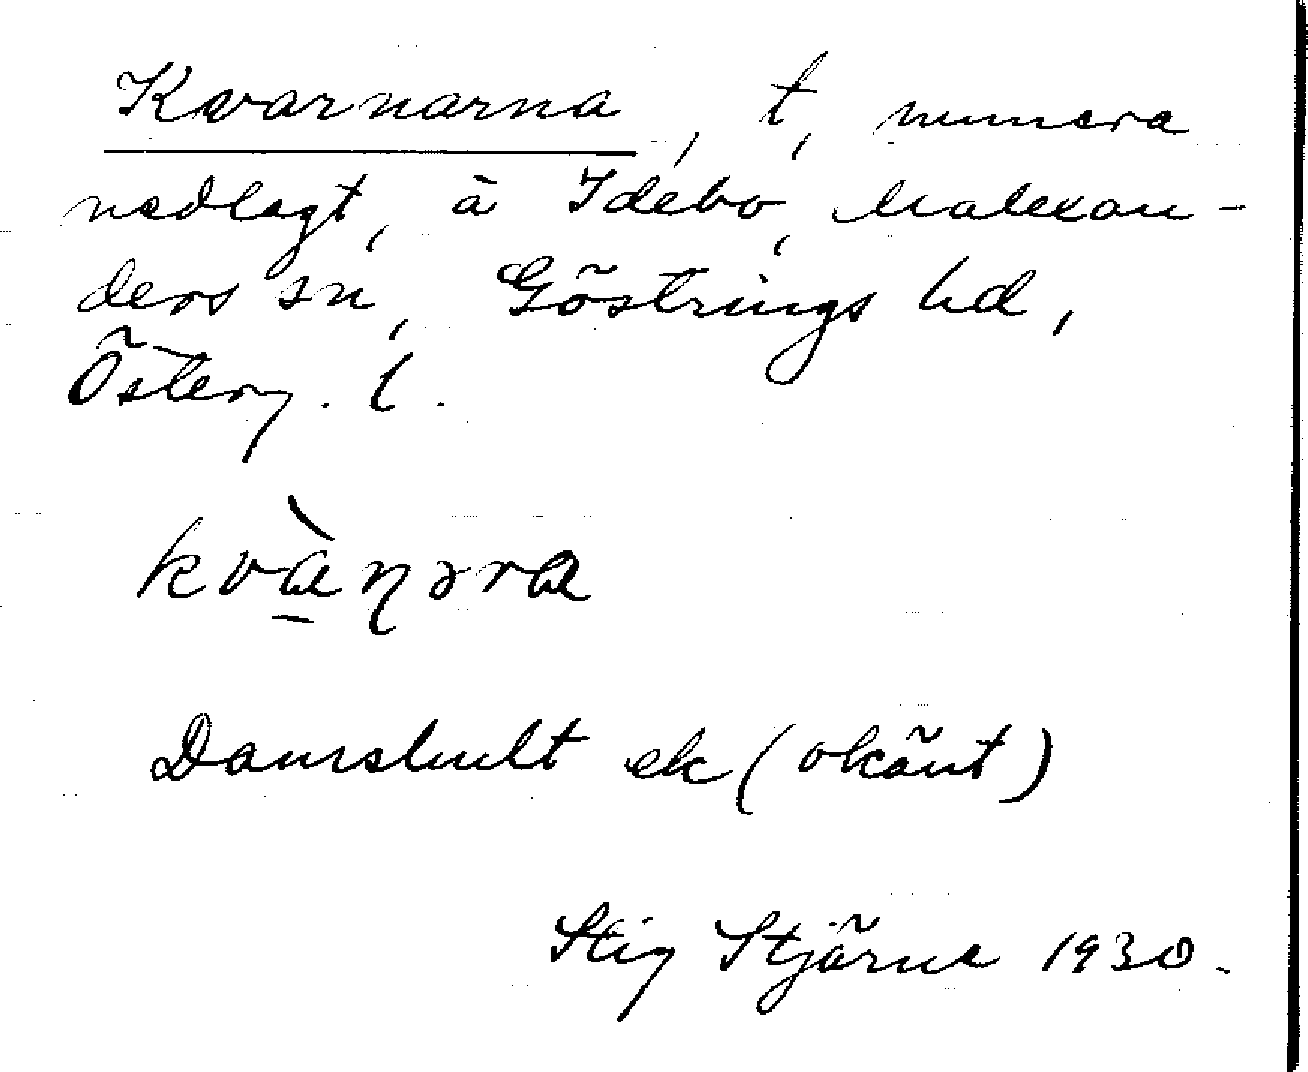 Kvarnarna, t, numera
nedlagt, å Idebo, Malexan-
ders sn, Göstrings hd,
Österg. l.
kvàṇəra
Damshult ek (okänt)
Stig Stjärne 1930.